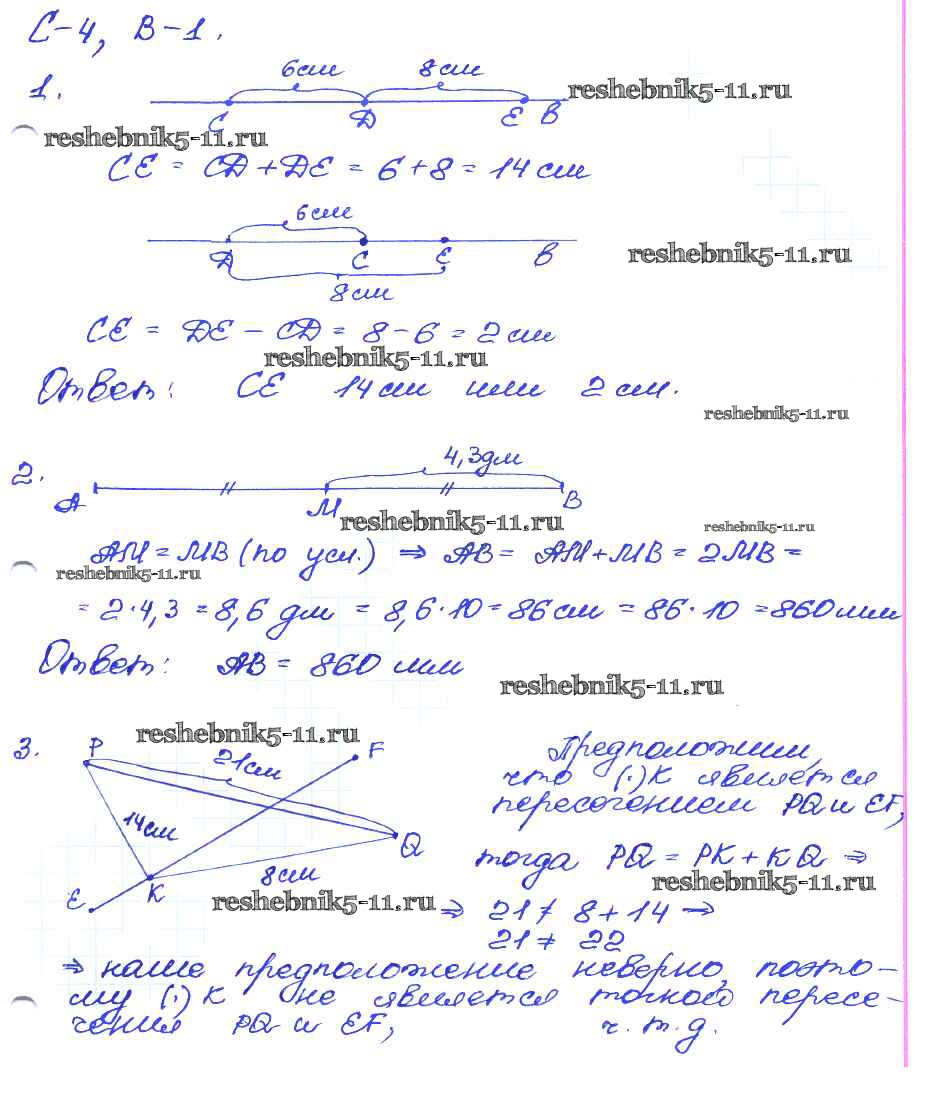 С-4, В-1.
1.
6см 8см
reshebnik5-11.ru
C D E B
reshebnik5-11.ru
CE = CD + DE = 6 + 8 = 14 см
6см
D C E B
reshebnik5-11.ru
8см
CE = DE - CD = 8 - 6 = 2 см
reshebnik5-11.ru
Ответ: CE 14 см или 2 см.
reshebnik5-11.ru
2.
4,3дм
A M B
reshebnik5-11.ru
reshebnik5-11.ru
AM = MB (по усл.) ⇒ AB = AM + MB = 2MB =
reshebnik5-11.ru
= 2·4,3 = 8,6 дм = 8,6·10 = 86 см = 86·10 = 860 мм
Ответ: AB = 860 мм
reshebnik5-11.ru
3.
reshebnik5-11.ru
P F
21см
14см
Q
8см
E K
reshebnik5-11.ru
Предположим,
что (·)K является
пересечением PQ и EF,
тогда PQ = PK + KQ ⇒
reshebnik5-11.ru
⇒ 21 ≠ 8 + 14 ⇒
21 ≠ 22
⇒ наше предположение неверно, поэто-
му (·) K не является точкой пересе-
чения PQ и EF, ч.т.д.